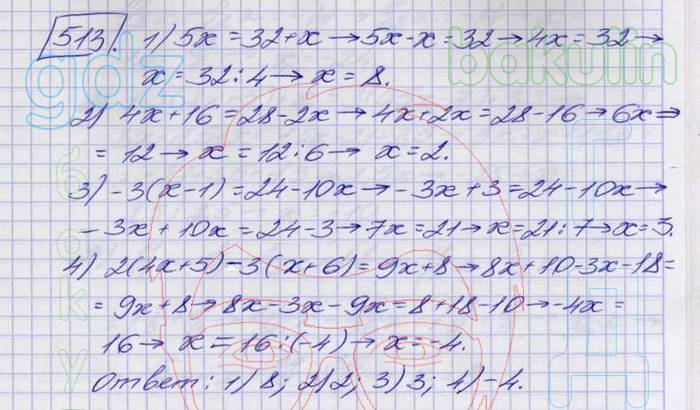 513. 1) 5x = 32 + x → 5x - x = 32 → 4x = 32 →
x = 32 : 4 → x = 8.
2) 4x + 16 = 28 - 2x → 4x + 2x = 28 - 16 → 6x =
= 12 → x = 12 : 6 → x = 2.
3) -3(x - 1) = 24 - 10x → -3x + 3 = 24 - 10x →
-3x + 10x = 24 - 3 → 7x = 21 → x = 21 : 7 → x = 3.
4) 2(4x + 5) - 3(x + 6) = 9x + 8 → 8x + 10 - 3x - 18 =
= 9x + 8 → 8x - 3x - 9x = 8 + 18 - 10 → -4x =
16 → x = 16 : (-4) → x = -4.
Ответ: 1) 8; 2) 2; 3) 3; 4) -4.
gdz
bakulin